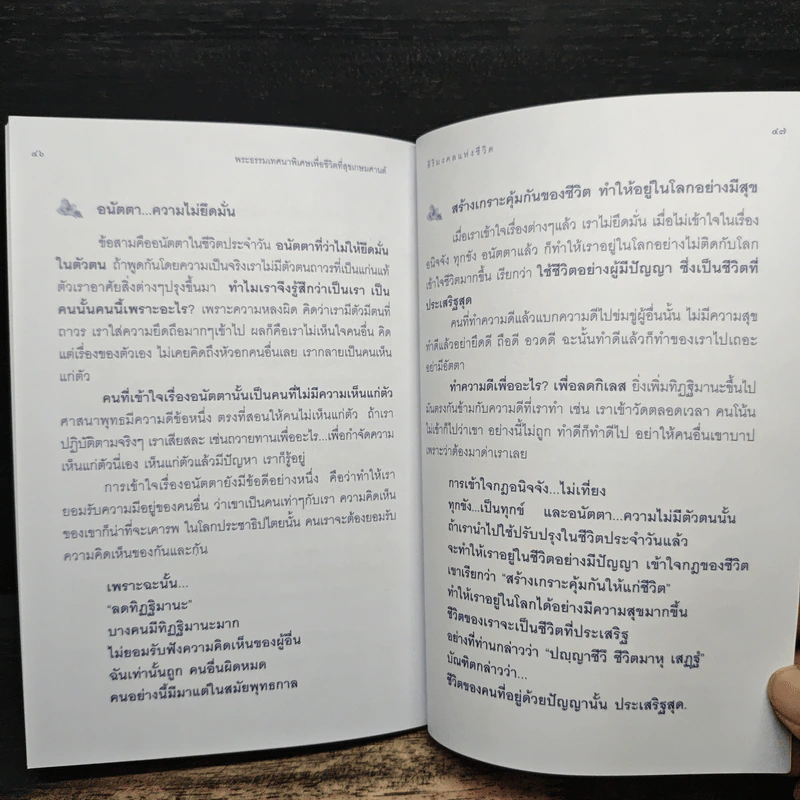 ๔๖
พระธรรมเทศนาพิเศษเพื่อชีวิตที่สุขเกษมศานต์
อนัตตา...ความไม่ยึดมั่น
ข้อสามคืออนัตตาในชีวิตประจำวัน อนัตตาที่ว่าไม่ให้ยึดมั่น
ในตัวตน ถ้าพูดกันโดยความเป็นจริงเราไม่มีตัวตนถาวรที่เป็นแก่นแท้
ตัวเราอาศัยสิ่งต่างๆปรุงขึ้นมา ทำไมเราจึงรู้สึกว่าเป็นเรา เป็น
คนนั้นคนนี้เพราะอะไร? เพราะความหลงผิด คิดว่าเรามีตัวมีตนที่
ถาวร เราใส่ความยึดถือมากๆเข้าไป ผลก็คือเราไม่เห็นใจคนอื่น คิด
แต่เรื่องของตัวเอง ไม่เคยคิดถึงหัวอกคนอื่นเลย เรากลายเป็นคนเห็น
แก่ตัว
คนที่เข้าใจเรื่องอนัตตานั้นเป็นคนที่ไม่มีความเห็นแก่ตัว
ศาสนาพุทธมีความดีข้อหนึ่ง ตรงที่สอนให้คนไม่เห็นแก่ตัว ถ้าเรา
ปฏิบัติตามจริงๆ เราเสียสละ เช่นถวายทานเพื่ออะไร...เพื่อกำจัดความ
เห็นแก่ตัวนี่เอง เห็นแก่ตัวแล้วมีปัญหา เราก็รู้อยู่
การเข้าใจเรื่องอนัตตายังมีข้อดีอย่างหนึ่ง คือว่าทำให้เรา
ยอมรับความมีอยู่ของคนอื่น ว่าเขาเป็นคนเท่าๆกับเรา ความคิดเห็น
ของเขาก็น่าที่จะเคารพ ในโลกประชาธิปไตยนั้น คนเราจะต้องยอมรับ
ความคิดเห็นของกันและกัน
เพราะฉะนั้น...
"ลดทิฏฐิมานะ"
บางคนมีทิฏฐิมานะมาก
ไม่ยอมรับฟังความคิดเห็นของผู้อื่น
ฉันเท่านั้นถูก คนอื่นผิดหมด
คนอย่างนี้มีมาแต่ในสมัยพุทธกาล
๔๗
สิริมงคลแห่งชีวิต
สร้างเกราะคุ้มกันของชีวิต ทำให้อยู่ในโลกอย่างมีสุข
เมื่อเราเข้าใจเรื่องต่างๆแล้ว เราไม่ยึดมั่น เมื่อไม่เข้าใจในเรื่อง
อนิจจัง ทุกขัง อนัตตาแล้ว ก็ทำให้เราอยู่ในโลกอย่างไม่ติดกับโลก
เข้าใจชีวิตมากขึ้น เรียกว่า ใช้ชีวิตอย่างผู้มีปัญญา ซึ่งเป็นชีวิตที่
ประเสริฐสุด
คนที่ทำความดีแล้วแบกความดีไปข่มขู่ผู้อื่นนั้น ไม่มีความสุข
ทำดีแล้วอย่ายึดดี ถือดี อวดดี ฉะนั้นทำดีแล้วก็ทำของเราไปเถอะ
อย่ามีอัตตา
ทำความดีเพื่ออะไร? เพื่อลดกิเลส ยิ่งเพิ่มทิฏฐิมานะขึ้นไป
มันตรงกันข้ามกับความดีที่เราทำ เช่น เราเข้าวัดตลอดเวลา คนโน้น
ไม่เข้าก็ไปว่าเขา อย่างนี้ไม่ถูก ทำดีก็ทำดีไป อย่าให้คนอื่นเขาบาป
เพราะว่าต้องมาด่าเราเลย
การเข้าใจกฎอนิจจัง...ไม่เที่ยง
ทุกขัง...เป็นทุกข์ และอนัตตา...ความไม่มีตัวตนนั้น
ถ้าเรานำไปใช้ปรับปรุงในชีวิตประจำวันแล้ว
จะทำให้เราอยู่ในชีวิตอย่างมีปัญญา เข้าใจกฎของชีวิต
เขาเรียกว่า "สร้างเกราะคุ้มกันให้แก่ชีวิต"
ทำให้เราอยู่ในโลกได้อย่างมีความสุขมากขึ้น
ชีวิตของเราจะเป็นชีวิตที่ประเสริฐ
อย่างที่ท่านกล่าวว่า "ปญฺญาชีวึ ชีวิตมาหุ เสฏฺฐํ"
บัณฑิตกล่าวว่า...
ชีวิตของคนที่อยู่ด้วยปัญญานั้น ประเสริฐสุด.